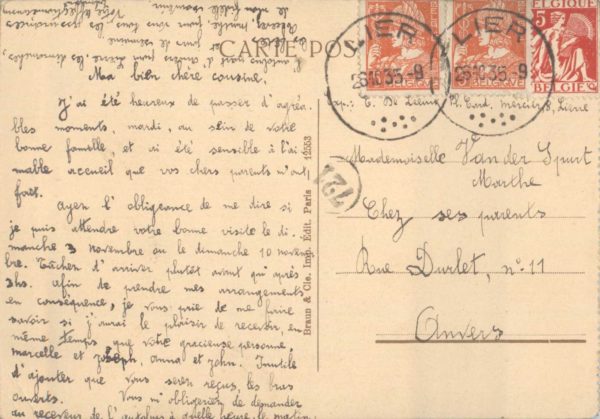 CARTE POS
LIER
26.10.35.-9
LIER
26.10.35.-9
5
BELGIQUE
BELGIE
BELGIE
BELGIE
Ma bien chère cousine.
J'ai été heureux de passer d'agréa-
bles moments, mardi, au sein de votre
bonne famille, et ai été sensible à l'ai-
mable accueil que vos chers parents m'ont
fait.
Ayez l'obligeance de me dire si
je puis attendre votre bonne visite le di-
manche 3 novembre ou le dimanche 10 novem-
bre. Tâchez d'arriver plutôt avant qu'après
3hs. afin de prendre mes arrangements
en conséquence, je vous prie de me faire
savoir si j'aurai le plaisir de recevoir, en
même temps que votre gracieuse personne,
marcelle et joseph, anna et john. Inutile
d'ajouter que vous serez reçus, les bras
ouverts. Vous m'obligerien de demander
au receveur de l'autobus à quelle heure, le matin
Braun & Cie. Imp. Édit. Paris 12553
721
Exp.: E. De
Mademoiselle Van der Spurt
Marthe
Chez ses parents
Rue Durlet, n° 11
Anvers